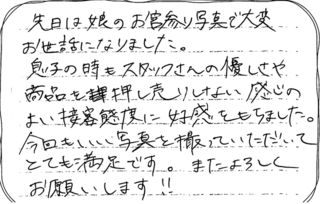 先日は娘のお宮参り写真で大変
お世話になりました。
息子の時もスタッフさんの優しさや
商品を押し売りしない感じの
よい接客態度に好感をもちました。
今回もいい写真を撮っていただいて
とても満足です。またよろしく
お願いします!!